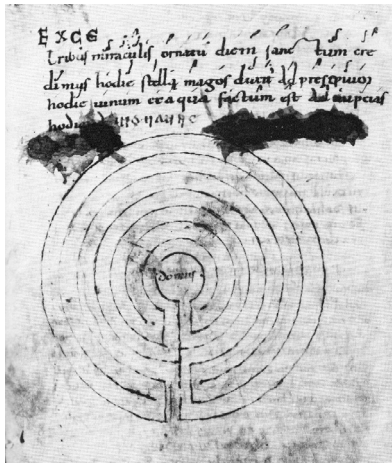 EXCE
Tribus miraculis ornatū diem sanc tum cre
dimus hodie stella magos duxit ad presepium
hodie uinum ex aqua factum est ad nuptias
hodie
domus